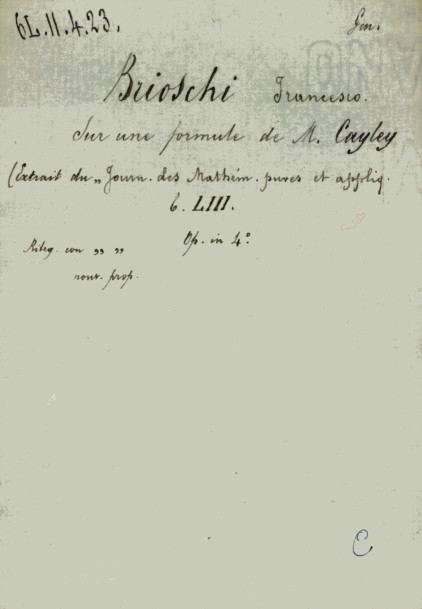 6L.11.4.23. Gen.
Brioschi Francesco.
Sur une formule de M. Cayley
(Extrait du „ Journ. des Mathém. pures et appliq.
t. LIII.
Op. in 4.°
Rileg. con „ „
nouv. prop.
C